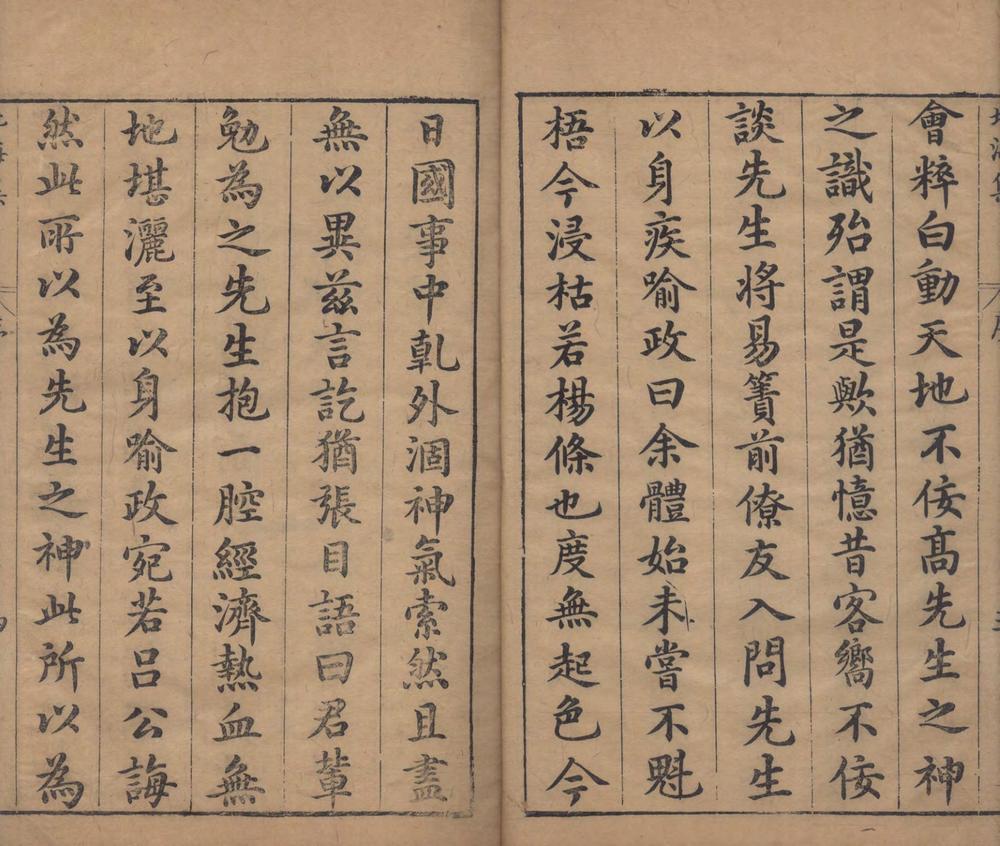 會粹白動天地不佞髙先生之神
之識殆謂是歟猶憶昔客嚮不佞
談先生將易簀前僚友入問先生
以身疾喻政曰余體始未嘗不魁
梧今浸枯若楊條也度無起色今
日國事中亁外涸神氣索然且盡
無以異兹言訖猶張目語曰君輩
勉為之先生抱一腔經濟熱血無
地堪灑至以身喻政宛若呂公誨
然此所以為先生之神此所以為